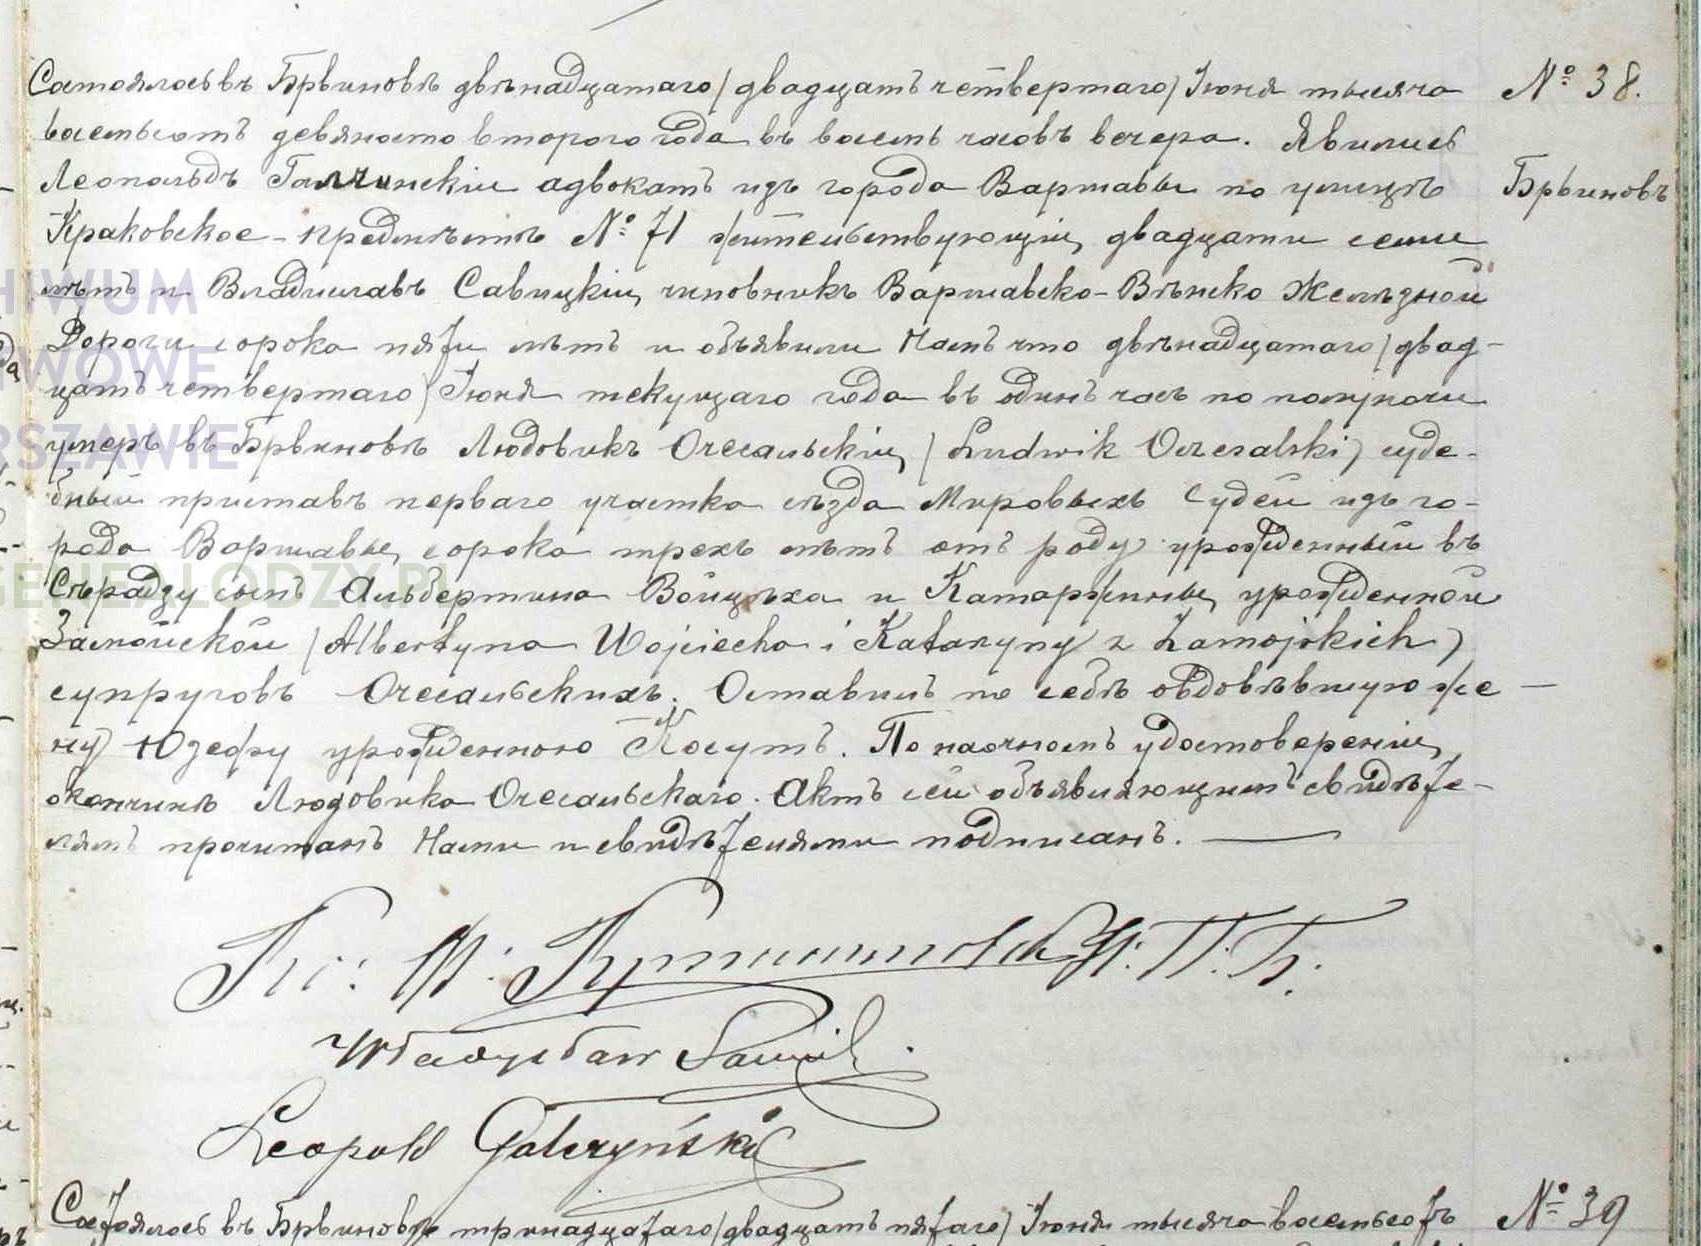 Состоялось въ Брвиновѣ двѣнадцатаго / двадцать четвертаго / Іюня тысяча № 38.
восемьсотъ девяносто второго года въ восемь часовъ вечера. Явились
Леопольдъ Галчинскій адвокатъ изъ города Варшавы по улицѣ Брвиновъ
Краковское-предмѣстѣ № 71 жительствующій, двадцати семи
лѣтъ и Владиславъ Савицкій, чиновникъ Варшавско-Вѣнско Желѣзной
Дороги сорока пяти лѣтъ и объявили Намъ что двѣнадцатаго / двад-
цать четвертаго / Іюня текущаго года въ одинъ часъ по полуночи
умеръ въ Брвиновѣ Людовикъ Очесальскій, / Ludwik Oczesalski / суде-
бный приставъ перваго участка съѣзда Мировыхъ Судей изъ го-
рода Варшавы, сорока трехъ лѣтъ отъ роду урожденный въ
Сѣрадзу сынъ Альбертина Войцѣха и Катаржины, урожденной
Замойской / Albertyna Wojciecha i Katarzyny z Zamojskich /
супруговъ Очесальскихъ. Оставилъ по себѣ овдовѣвшую же-
ну Юзефу урожденною Косутъ. По наочномъ удостовереніи,
окончинѣ Людовика Очесальскаго. Актъ сей объявляющимъ свидѣте-
лямъ прочитанъ Нами и свидѣтелями подписанъ.
Władysław Sawicki
Leopold Gałczyński
Состоялось въ Брвиновѣ тринадцатаго / двадцать пятаго / Іюня тысяча восемьсотъ № 39